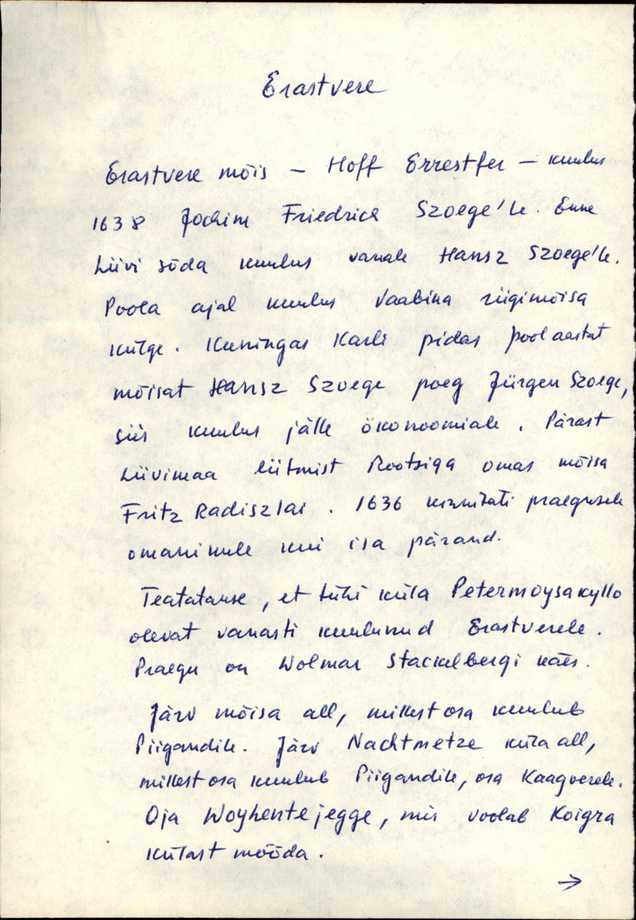 Erastvere
Erastvere mõis – Hoff Errestfer – kuulus
1638 Jochim Friedrich Szoege'le. Enne
Liivi sõda kuulus vanale Hansz Szoege'le.
Poola ajal kuulus Vaabina riigimõisa
külge. Kuningas Karli pidas pool aastat
mõisat Hansz Szoege poeg Jürgen Szoege,
siis kuulus jälle ökonoomiale. Pärast
Liivimaa liitmist Rootsiga omas mõisa
Fritz Radiszlai. 1636 kinnitati praegusele
omanikule kui isa pärand.
Teatatakse, et tühi küla Petermoysakyllo
olevat vanasti kuulunud Erastverele.
Praegu on Wolmar Stackelbergi käes.
Järv mõisa all, millest osa kuulub
Piigandile. Järv Nachtmetze küla all,
millest osa kuulub Piigandile, osa Kaagverele.
Oja Woyhentejegge, mis voolab Koigra
külast mööda.
→